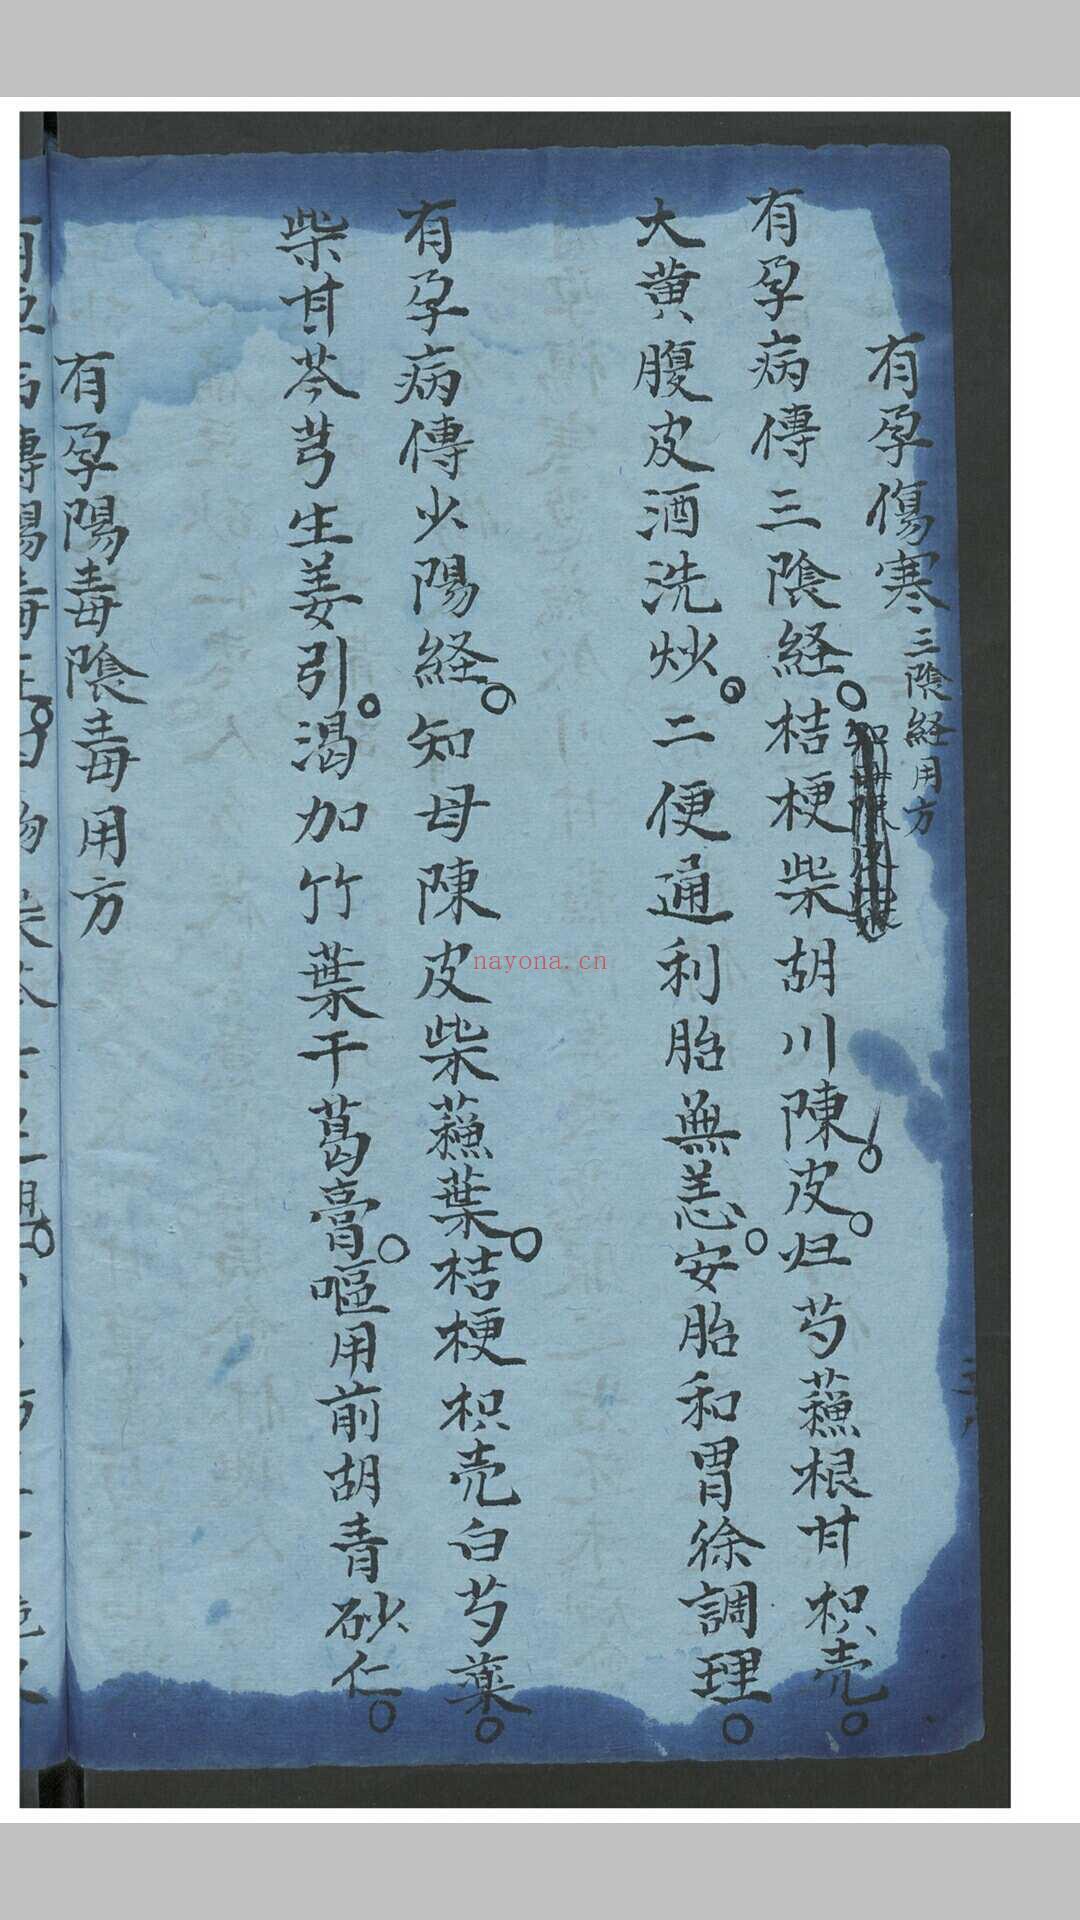 有孕傷寒三陰経用方
有孕病傳三陰経。桔梗柴胡川陳。皮。归芍蘓根甘枳壳。
大黄腹皮酒洗炒。二便通利胎無恙。安胎和胃徐調理。
有孕病傳少陽経。知母陳皮柴蘓葉。桔梗枳壳白芍薬。
柴甘芩芎生姜引。渴加竹葉干葛膏。嘔用前胡青砂仁。
有孕陽毒陰毒用方
nayona.cn